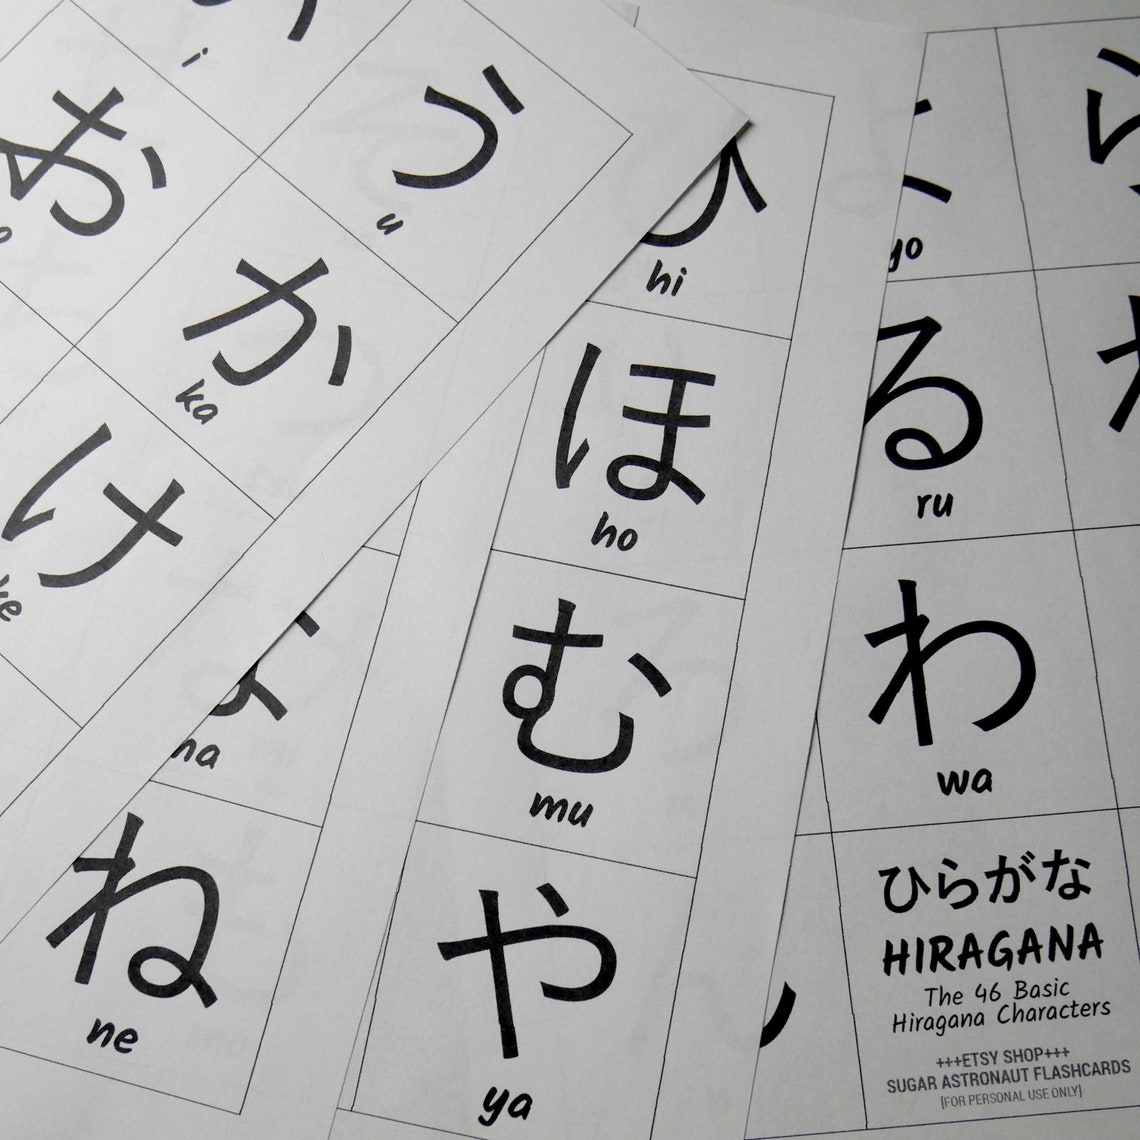 i
う
u
お
o
か
ka
け
ke
な
na
ね
ne
ひ
hi
ほ
ho
む
mu
や
ya
よ
yo
ら
る
ru
わ
wa
ひらがな
HIRAGANA
The 46 Basic
Hiragana Characters
+++ETSY SHOP+++
SUGAR ASTRONAUT FLASHCARDS
[FOR PERSONAL USE ONLY]